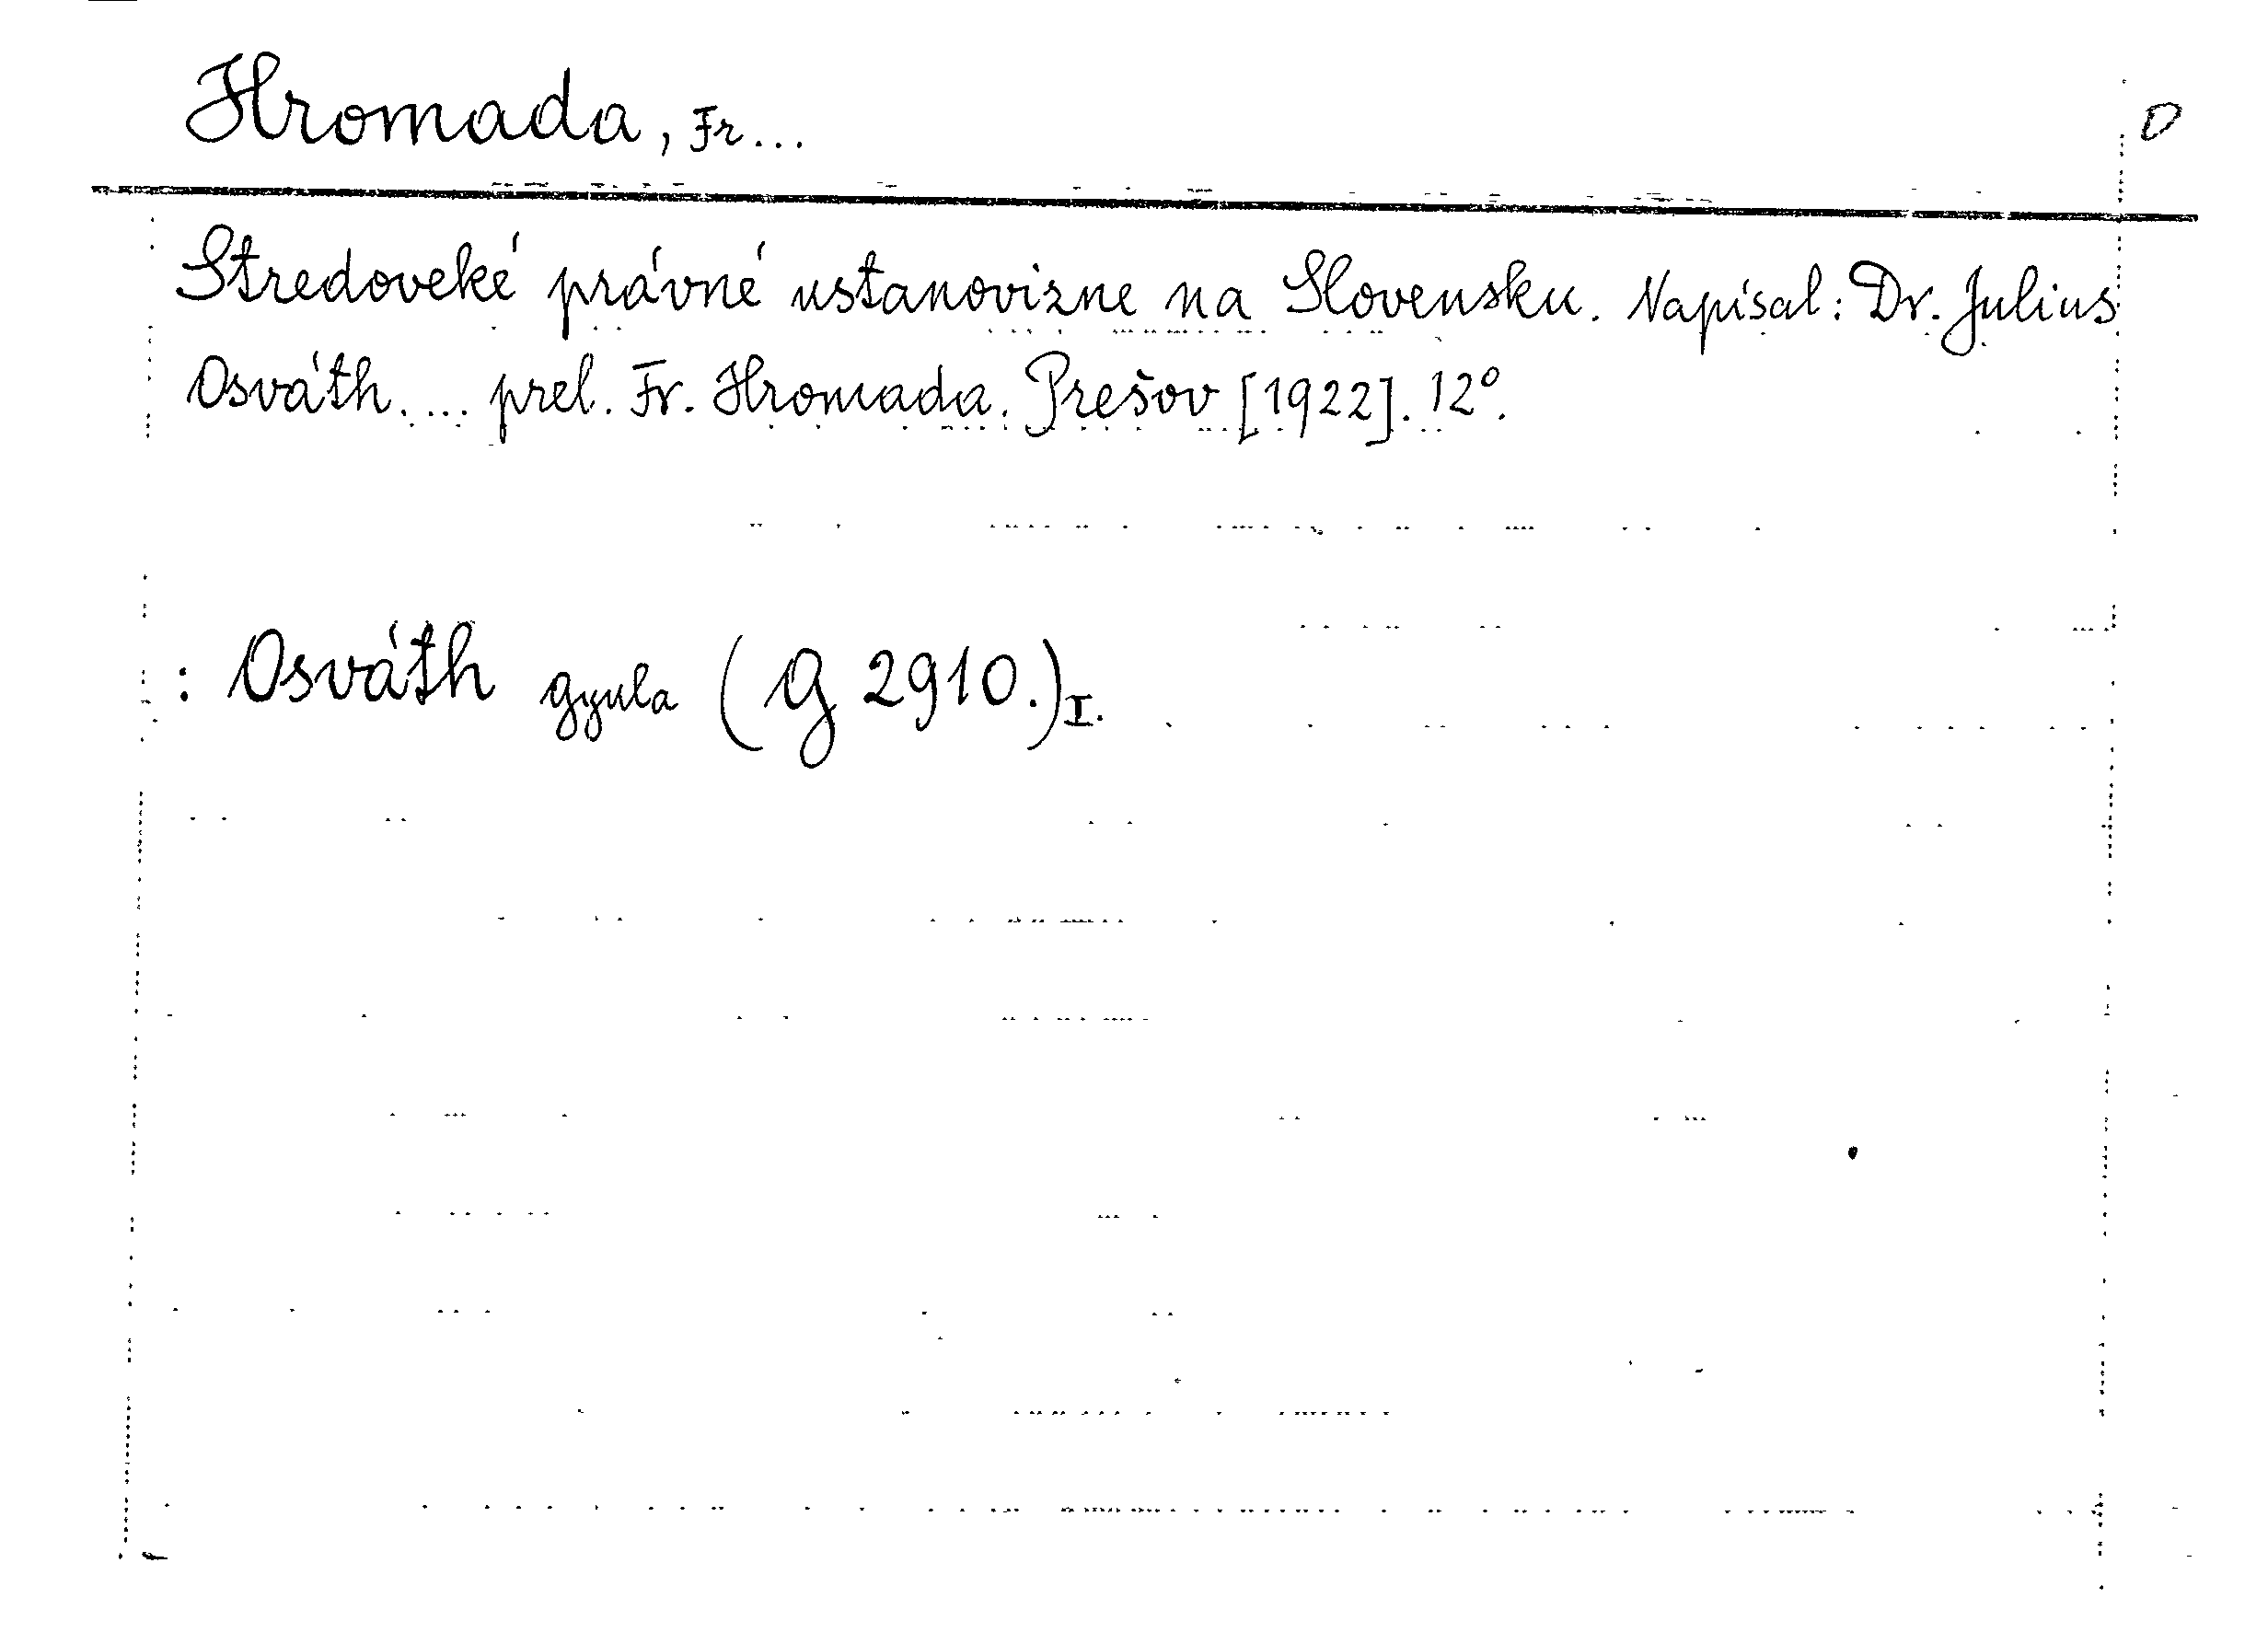 Hromada, Fr...
D
Stredoveké právné ustanovizne na Slovensku. Napísal: Dr. Julius
Osváth. ... prel. Fr. Hromada. Prešov [1922]. 12°.
: Osváth gyula (G 2910.) I.